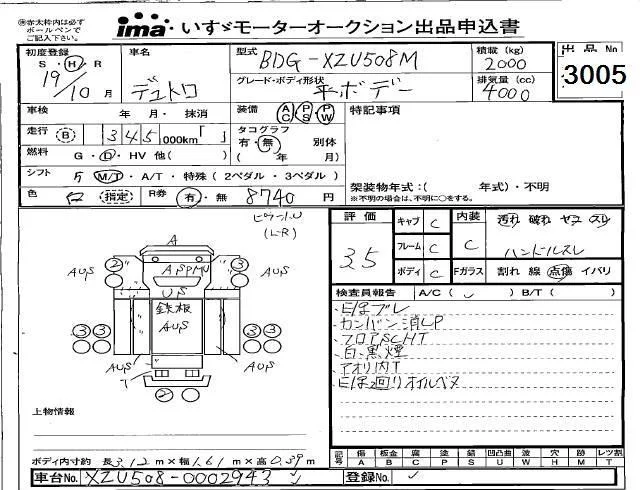 ※赤太枠内は必ず
ボールペンで
ご記入下さい。
ima いすゞモーターオークション出品申込書
初度登録 車名 型式 BDG-XZU508M 積載 (kg) 2000 出品 No 3005
S・H・R 19/10 月 デュトロ
グレード・ボディ形状 平ボデー 排気量 (cc) 4000
車検 年 月・抹消 装備 AC PS PW 特記事項
走行 (B) 345,000km「 」 タコグラフ
有・無 別体
燃料 G・D・HV 他( ) ( 年 月)
シフト 5 M/T・A/T・特殊 (2ペダル・3ペダル)
架装物年式:( 年式)・不明
色 白 (指定) R券 有・無 8740 円 ※不明の場合は、不明に○をする。
(L-R)
評価 35 キャブ C 内装 C 汚れ 破れ ヤコ スレ
フレーム C ハンドルスレ
ボディ C Fガラス 割れ 線 点傷 イバリ
A
② ③
AUS ASPMU AUS
US
鉄板
AUS
③③ ③③
AUS AUS
T
②
検査員報告 A/C( ) B/T( )
カンバン消しP
フロアSCHT
白・黒煙
アオリ内T
上物情報
ボディ内寸約 長3.12m×幅1.61m×高0.39m
記号 傷A 板金B 腐C 塗P 錆S 凹凸曲U 波W 穴H 跡M レツ割T
車台No. XZU508-0002943 登録No.